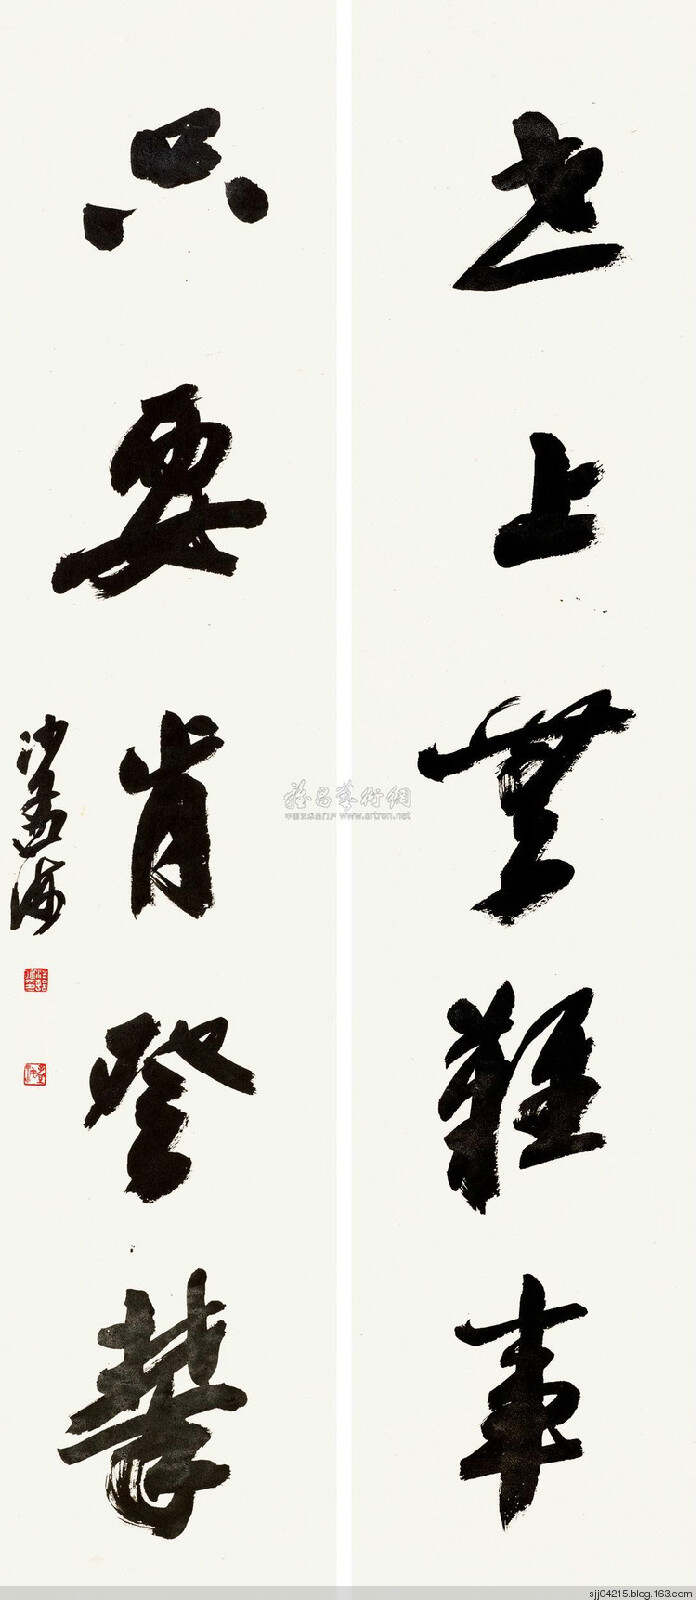 世上無難事
只要肯登攀
沙孟海
雅昌藝術網
www.artron.net
sjj04215.blog.163.com